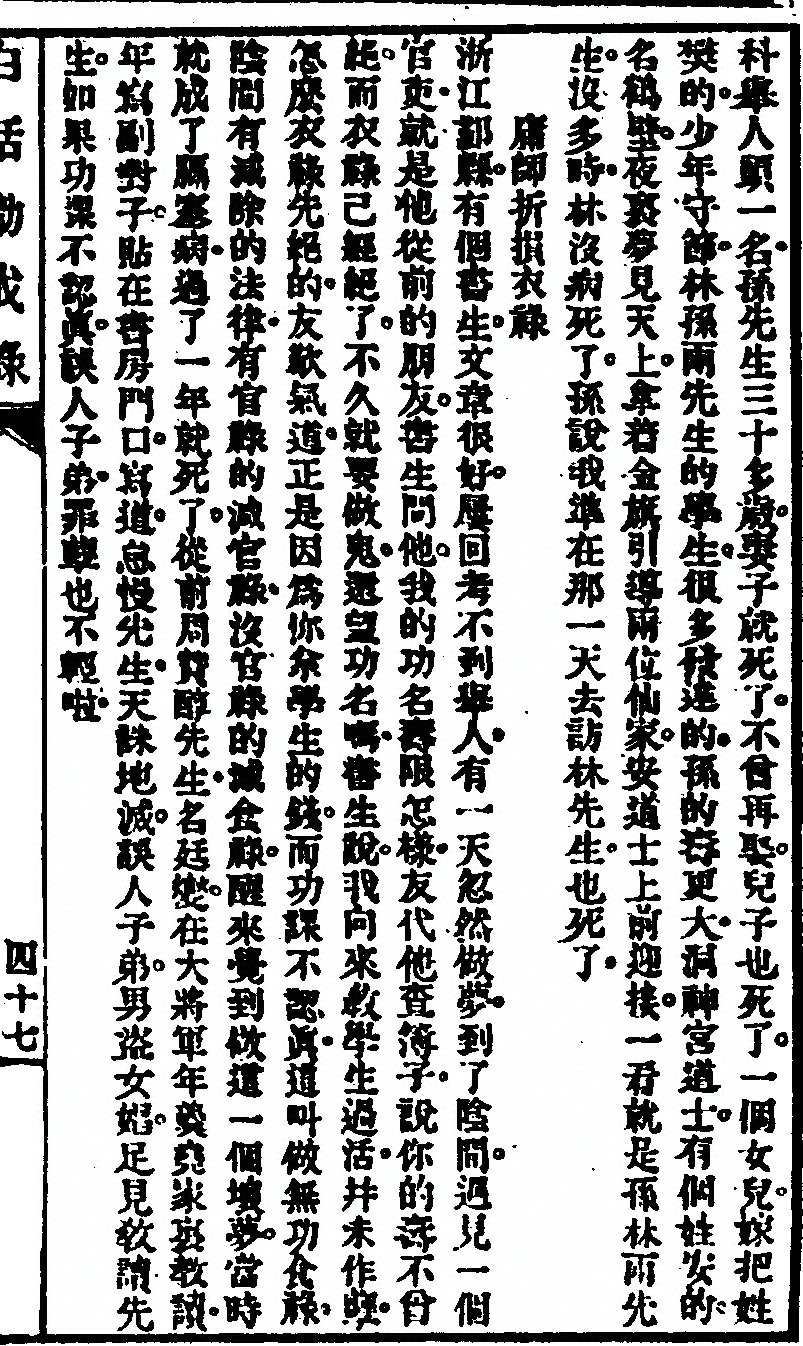 科舉人頭一名。孫先生三十多歲。妻子就死了。不曾再娶。兒子也死了。一個女兒。嫁把姓
樊的。少年守節。林孫兩先生的學生。很多發達的。孫的壽更大。洞神宮道士。有個姓安的。
名鶴壁。夜裏夢見天上。拿着金旗引導兩位仙家。安道士上前迎接。一看就是孫林兩先
生。沒多時。林沒病死了。孫說我準在那一天去訪林先生。也死了。
庸師折損衣祿
浙江鄞縣。有個書生。文章很好。屢回考不到舉人。有一天忽然做夢。到了陰間。遇見一個
官吏。就是他從前的朋友。書生問他。我的功名壽限怎樣。友代他查簿子。說你的壽不曾
絕。而衣祿己經絕了。不久就要做鬼。還望功名嗎。書生說。我向來教學生過活。幷未作孽。
怎麼衣祿先絕的。友歎氣道。正是因爲你拿學生的錢。而功課不認眞。這叫做無功食祿。
陰間有減除的法律。有官祿的減官祿。沒官祿的減食祿。醒來覺到做這一個壞夢。當時
就成了膈塞病。過了一年就死了。從前周贊醇先生。名廷燮。在大將軍年羹堯家裏教讀。
年寫副對子。貼在書房門口。寫道。怠慢先生。天誅地滅。誤人子弟。男盜女娼。足見教讀先
生。如果功課不認眞。誤人子弟。罪孽也不輕啦。
白話勸戒錄
四十七